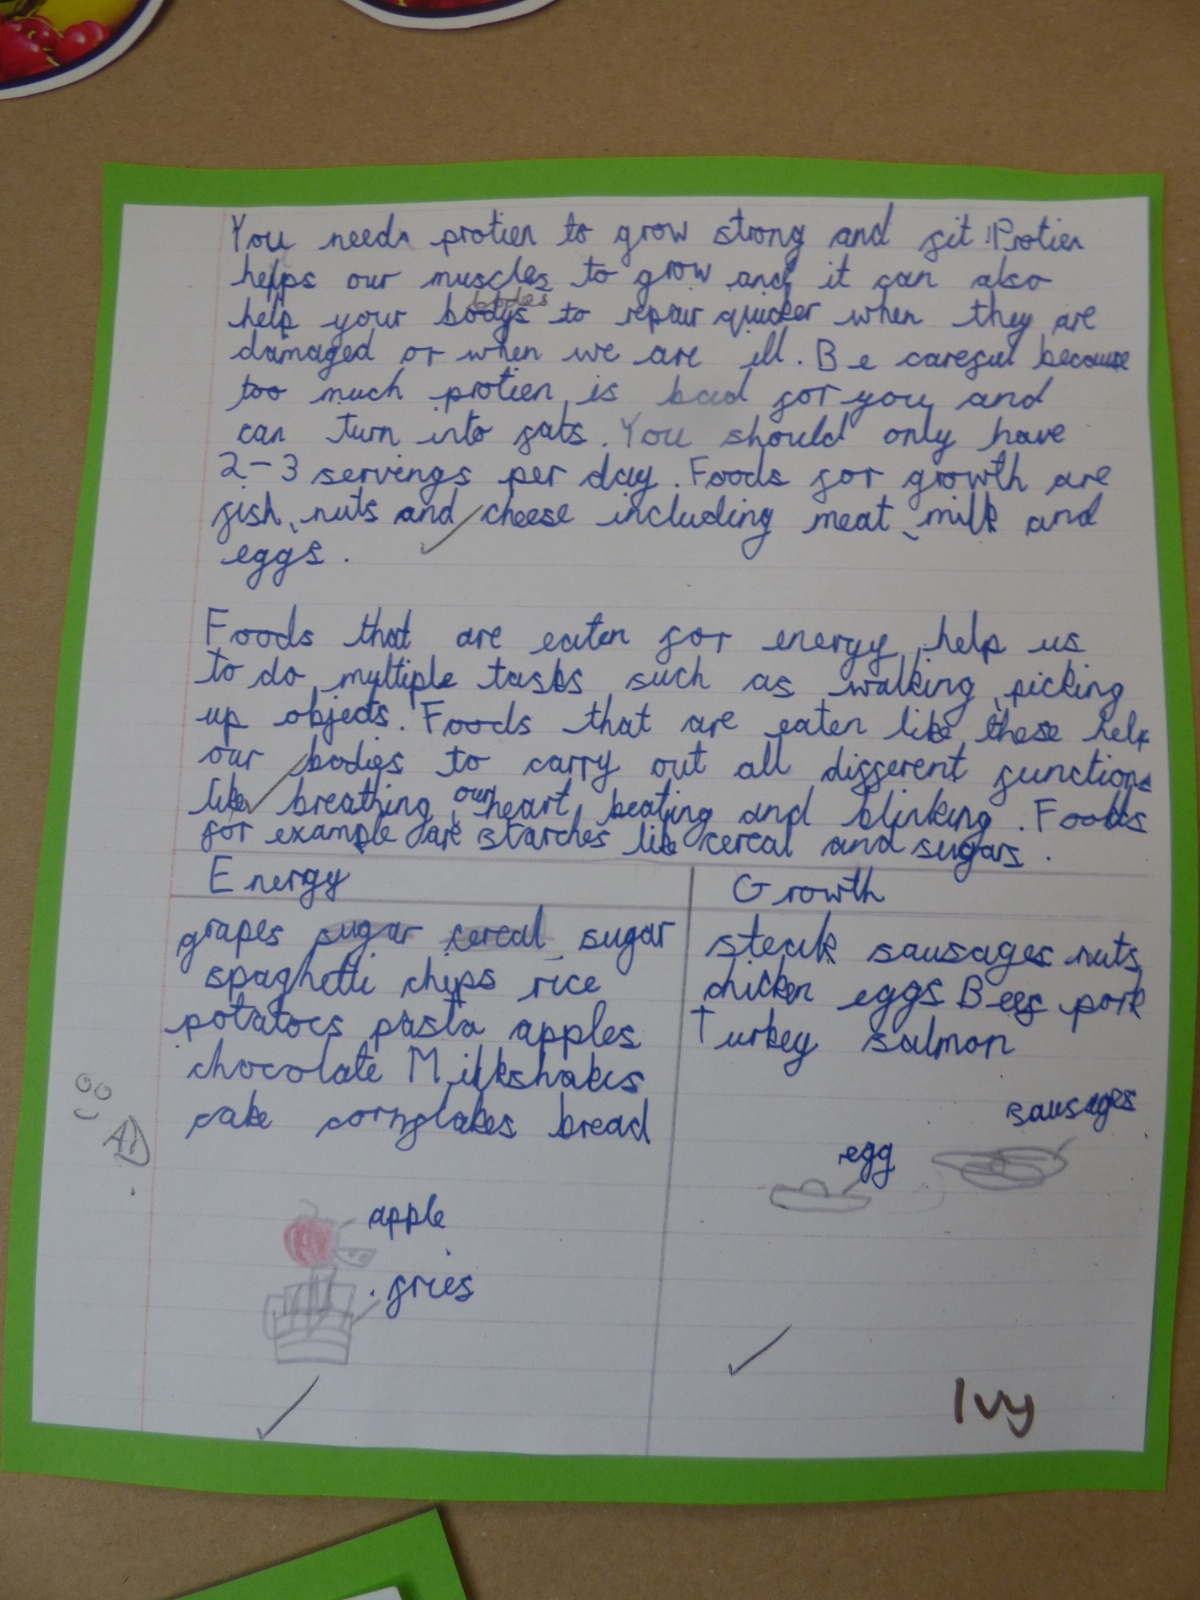 You need protien to grow strong and fit. Protien
helps our muscles to grow and it can also
bodies
help your bodys to repair quicker when they are
damaged or when we are ill. Be careful because
too much protien is bad for you and
can turn into fats. You should only have
2-3 servings per day. Foods for growth are
fish, nuts and cheese including meat, milk and
eggs.
Foods that are eaten for energy help us
to do multiple tasks such as walking, picking
up objects. Foods that are eaten like these help
our bodies to carry out all different functions
like breathing, our heart beating and blinking. Foods
for example are starches like cereal and sugars.
Energy
grapes sugar cereal sugar
spaghetti chips rice
potatoes pasta apples
chocolate Milkshakes
cake cornflakes bread
apple
fries
Growth
steak sausages nuts
chicken eggs Beef pork
Turkey salmon
sausages
egg
AD
Ivy